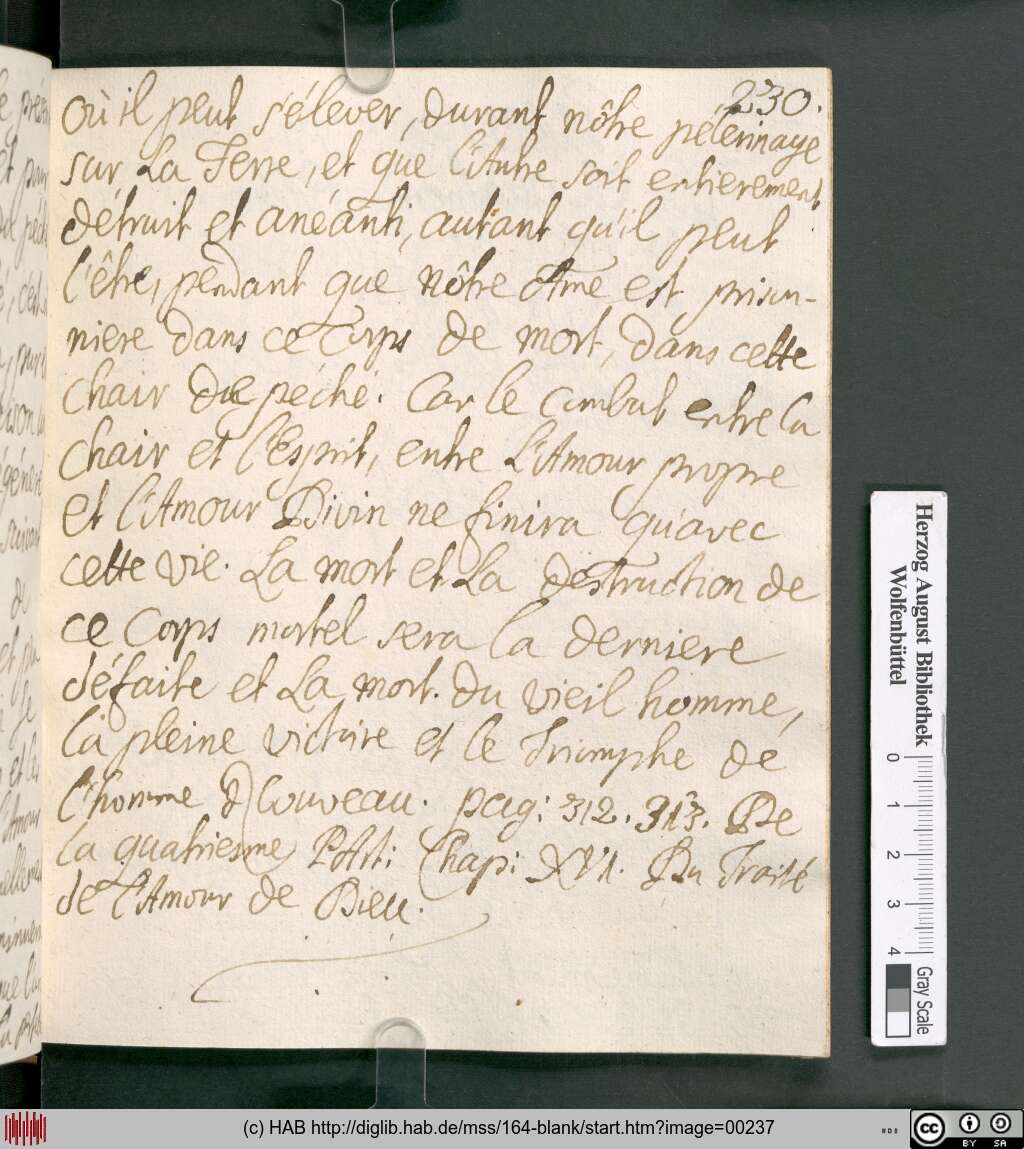 230.
où il peut s'élever, durant nôtre pelerinage
sur La Terre, et que l'Autre soit entierement
détruit et anéanti, autant qu'il peut
l'être, pendant que nôtre Ame est prison-
niere dans ce Corps de mort, dans cette
chair de péché. Car le combat entre la
chair et l'Esprit, entre L'Amour propre
et l'Amour Divin ne finira qu'avec
cette vie. La mort et La destruction de
ce Corps mortel sera la derniere
défaite et La mort du vieil homme,
la pleine victoire et le Triomphe de
l'homme Nouveau. pag: 312. 313. De
la quatriesme Part: Chap: XVI. Du Traité
de L'Amour de Dieu.
Herzog August Bibliothek
Wolfenbüttel
0 1 2 3 4
Gray Scale
(c) HAB http://diglib.hab.de/mss/164-blank/start.htm?image=00237
cc BY SA